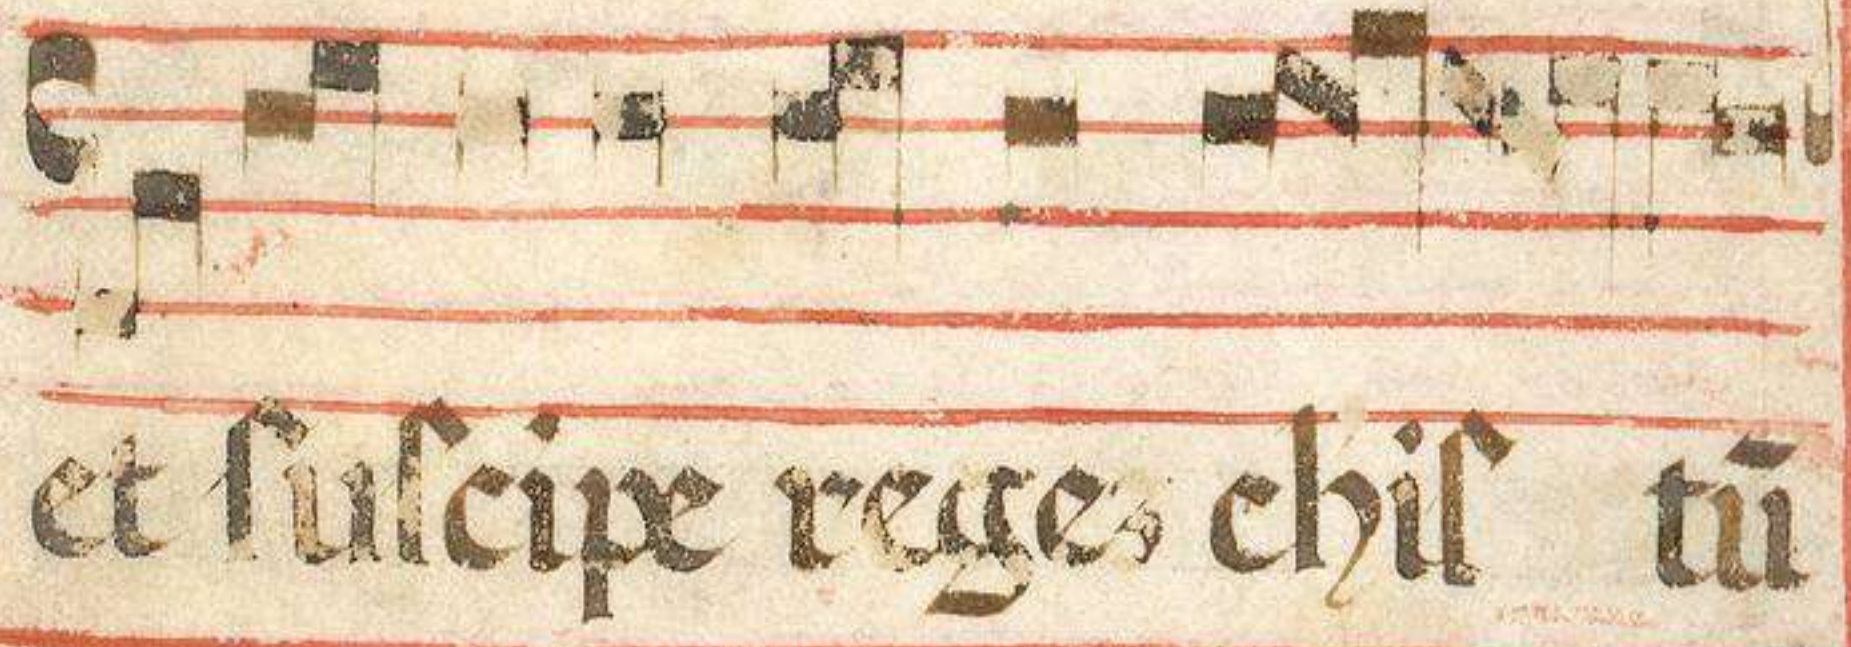 et ſuſcipe regez chiſ tū